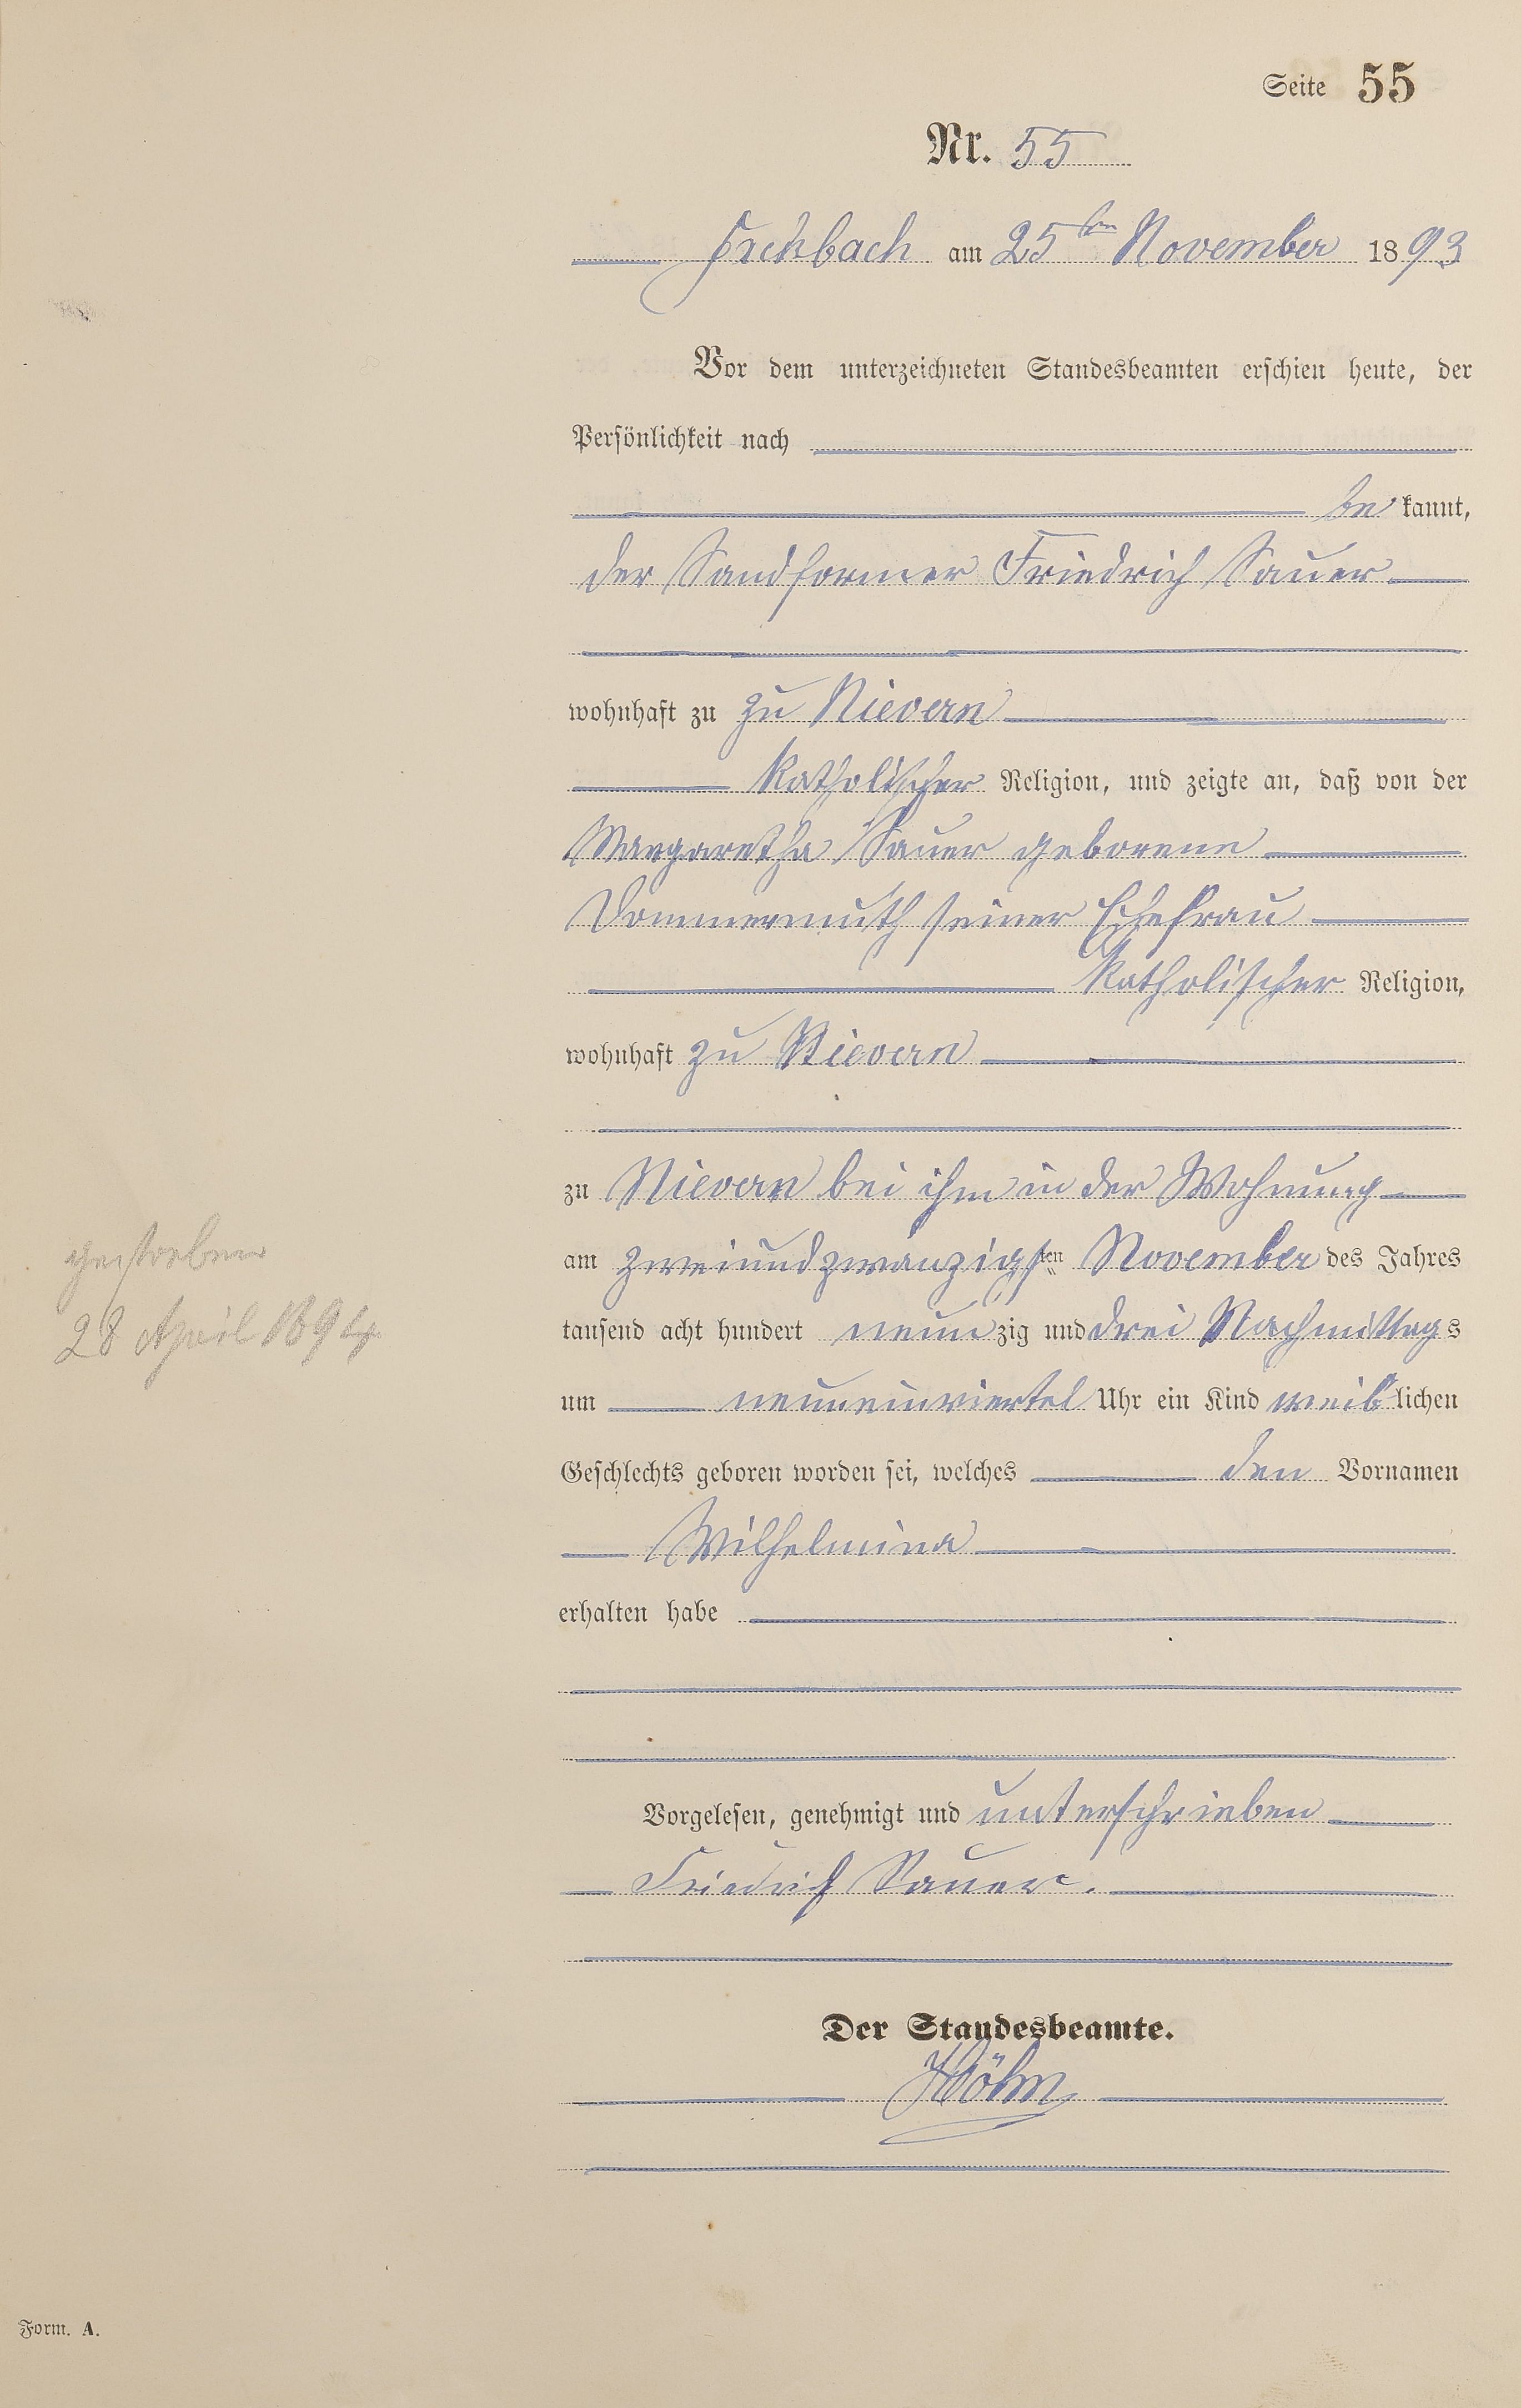 Seite 55
Nr. 55
am 25ten November 1893
Vor dem unterzeichneten Standesbeamten erschien heute, der
Persönlichkeit nach
be kannt,
der Sandformer Friedrich Sauer
wohnhaft zu zu Nievern
katholischer Religion, und zeigte an, daß von der
Margaretha Sauer geborene
Dommermuth seiner Ehefrau
katholischer Religion,
wohnhaft zu Nievern
zu Nievern bei ihm in der Wohnung
am zweiundzwanzigsten November des Jahres
gestorben
tausend acht hundert neunzig und drei Nachmittags
28 April 1894
um neuneinviertel Uhr ein Kind weiblichen
Geschlechts geboren worden sei, welches den Vornamen
Wilhelmina
erhalten habe
Vorgelesen, genehmigt und unterschrieben
Friedrich Sauer.
Der Standesbeamte.
Form. A.